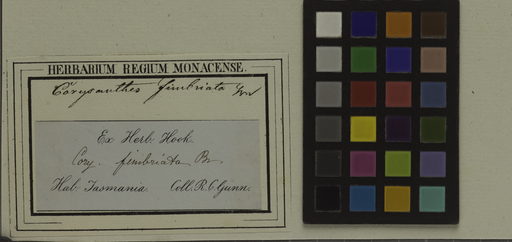 HERBARIUM REGIUM MONACENSE.
Corysanthes fimbriata
Ex Herb: Hook.
Cory. fimbriata Br
Hab: Tasmania. Coll. R. C. Gunn.